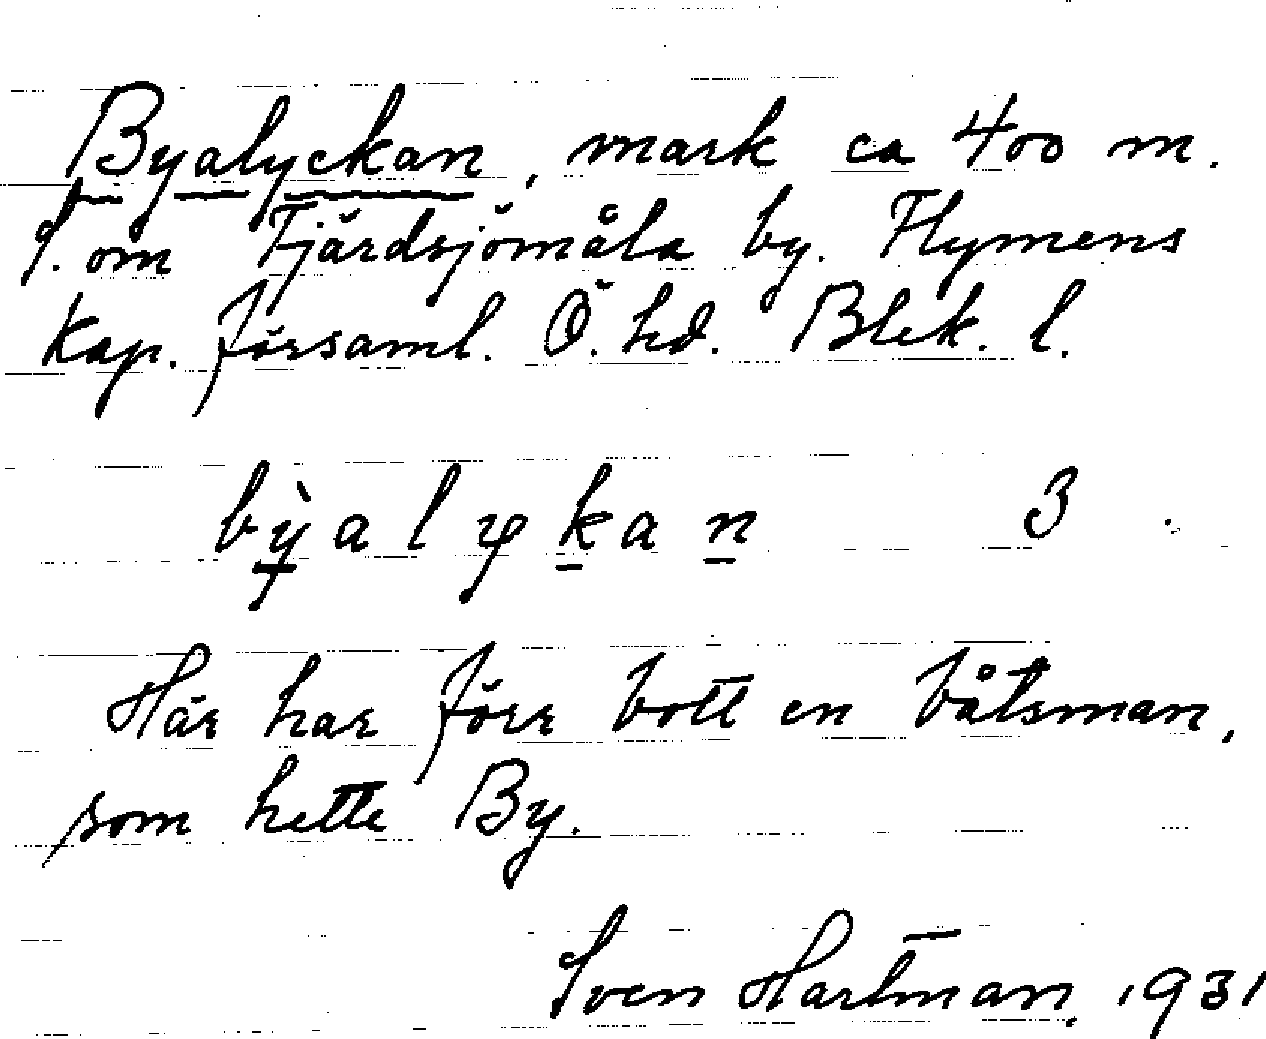 Byalyckan, mark ca 400 m.
S. om Fjärdsjömåla by. Flymens
Kap. församl. Ö. hd. Blek. l.
bỳalykan 3
Här har förr bott en båtsman,
som hette By.
Sven Hartman, 1931